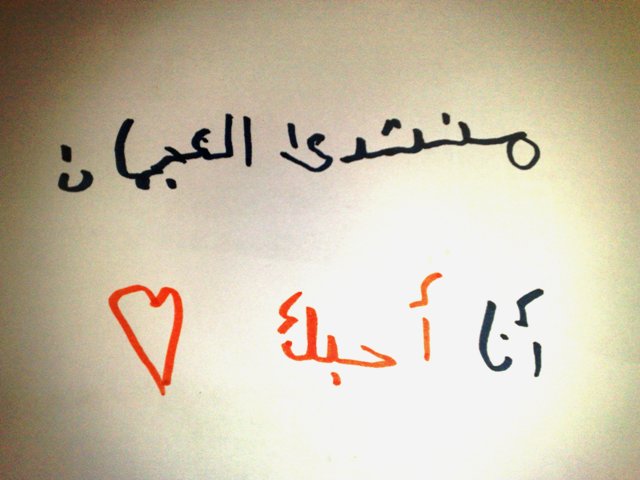 منتدى العجمان
أنا أحبك